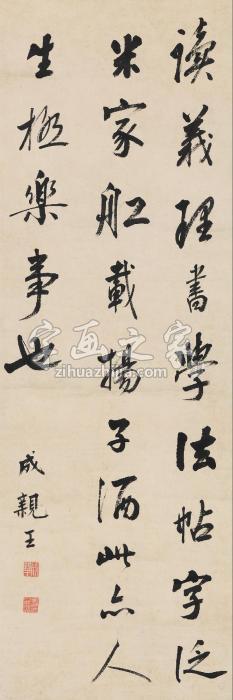 读義理書學法帖字泛
米家舡載揚子酒此亦人
生極樂事也
成親王
字画之家
zihuazhijia.com